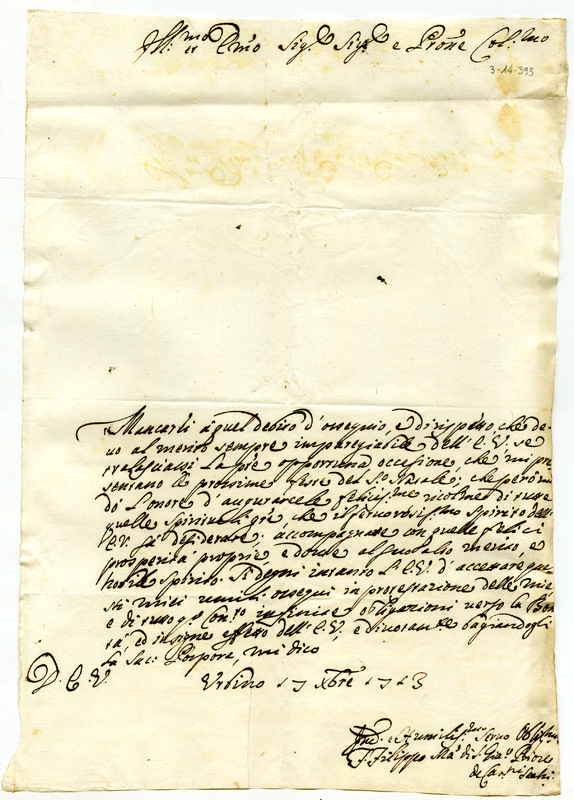 Ill:mo et Emo Sig.r Sig.r e Prone Col:mo
3-14-393
Mancarei à quel debito d'ossequio, e di rispetto, che de-
uo al merito sempre impareggiabile dell'E.V. se
tralasciassi la pre opportuna occasione, che mi pre
sentano le prossime feste del S.o Natale; che però mi
dò l'onore d'augurarcele felicissime ricolme di tutte
quelle spirituali grè, che il feruorosissimo spirito dell'
E.V. sà desiderare; accompagnate con quelle felici
prosperità proprie e douute al suo alto merito, e
nobile spirito. Si degni intanto l'E.V. d'accettare que
sti miei umili ossequi in protestazione delle mie
e di tutto q.o Con.to infinite obligazioni uerso la Bon
tà, ed insigne affetto dell'E.V. e diuotam.te bagiandogli
la Sac: Porpora, mi dico
D. E. V.
Urbino 17 Xbre 1713
Fr. Filippo Ma di S. Gio: Priore
de Car.ni Scalzi